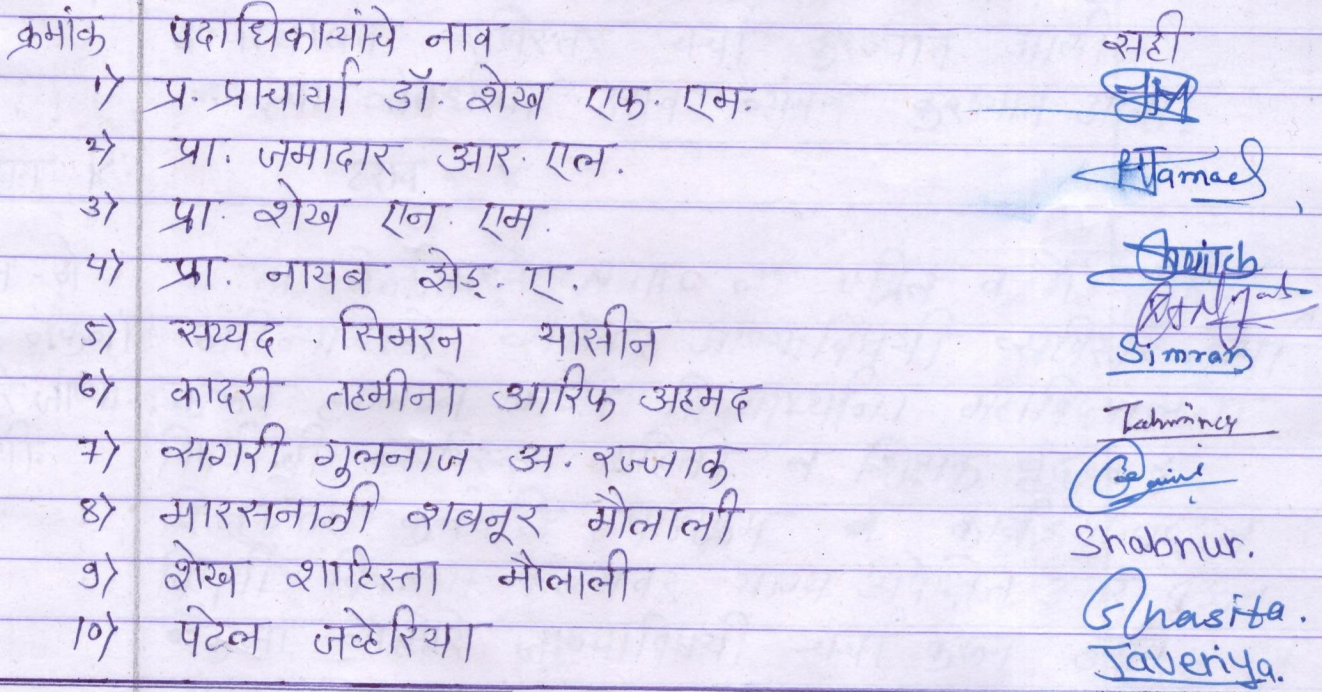 क्रमांक पदाधिकाऱ्यांचे नाव सही
१) प्र. प्राचार्या डॉ. शेख एफ. एम.
२) प्रा. जमादार आर. एल.
३) प्रा. शेख एन. एम.
४) प्रा. नायब झेड. ए.
५) सय्यद सिमरन यासीन Simran
६) कादरी तहमीना आरिफ अहमद Tahmincy
७) सगरी गुलनाज अ. रज्जाक
८) मारसनाळी शबनूर मौलाली Shabnur.
९) शेख शाहिस्ता मौलाली Shasita.
१०) पटेल जव्हेरिया Javeriya.